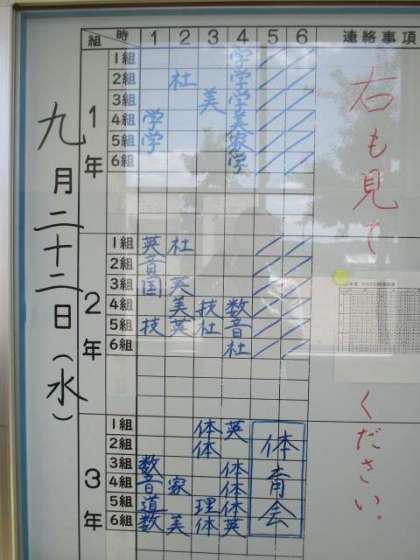 九月二十二日(水)
組 時 1 2 3 4 5 6 連絡事項
1年
1組 学
2組 社 学
3組 美 学
4組 学 美
5組 学 家
6組 学
2年
1組 英 社
2組 音
3組 国 英
4組 美 技 数
5組 技 英 社 音
6組 社
3年
1組 体 英
2組 体
3組 数 体
4組 音 家 体
5組 道 理 体
6組 数 美 体 英
体育会
右も見てください。